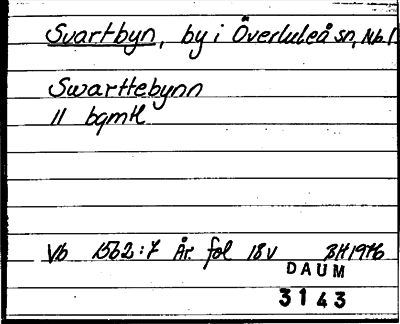 Svartbyn, by i Överluleå sn, Nb l
Swarttebynn
11 bqmtl
Vb 1562:7 År fol 18v BH1976
DAUM
3143